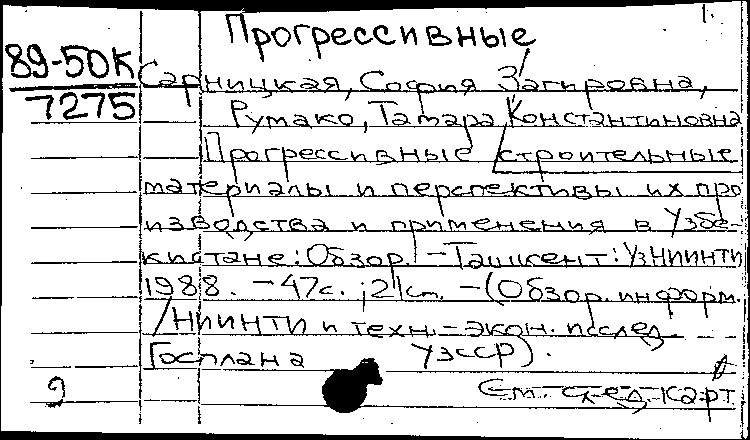 1.
Прогрессивные
89-50К
7275
Сарницкая, София Загировна,
Румако, Тамара Константиновна
Прогрессивные строительные
материалы и перспективы их про
изводства и применения в Узбе-
кистане: Обзор. - Ташкент: УзНИИНТИ
1988. - 47с.; 21см. - (Обзор. информ.
/НИИНТИ и техн.-экон. исслед.
Госплана УзССР).
См. след. карт.